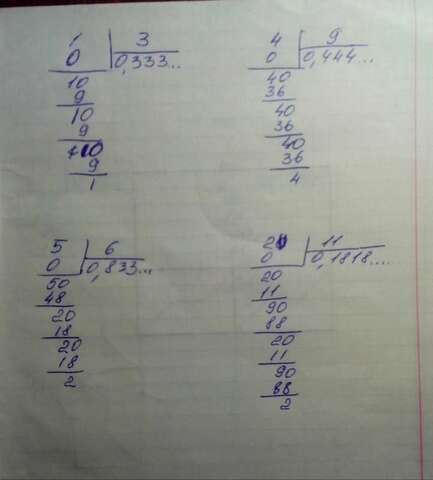 1 3
0 0,333...
10
9
10
9
10
9
1
4 9
0 0,444...
40
36
40
36
40
36
4
5 6
0 0,833...
50
48
20
18
20
18
2
2 11
0 0,1818....
20
11
90
88
20
11
90
88
2